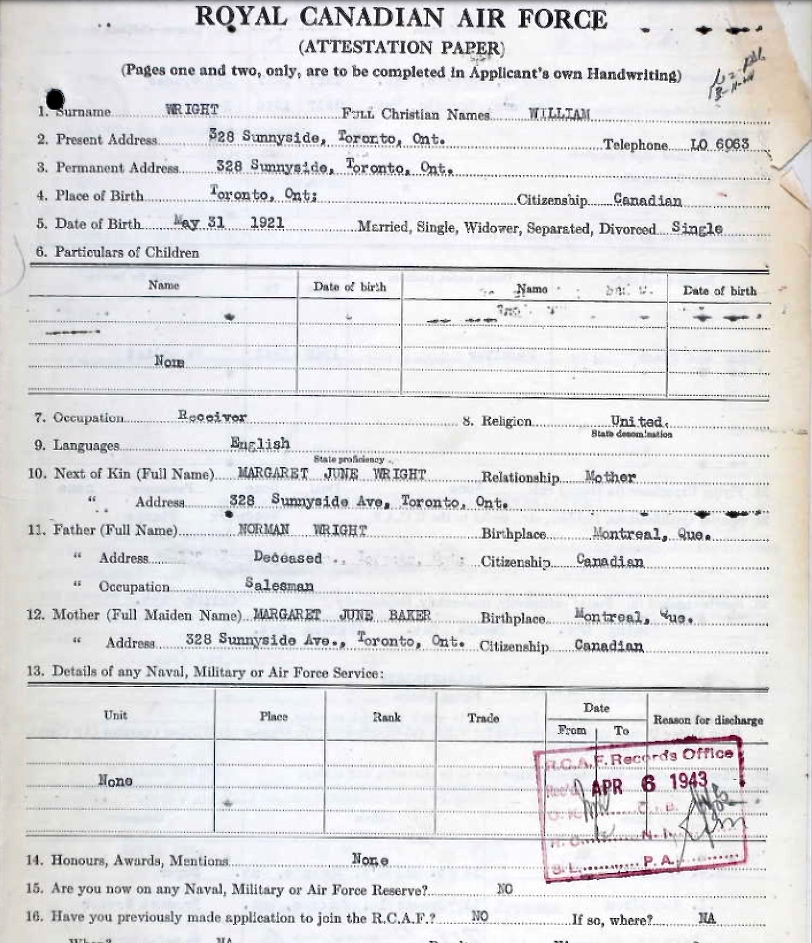 ROYAL CANADIAN AIR FORCE
(ATTESTATION PAPER)
(Pages one and two, only, are to be completed in Applicant's own Handwriting)
1. Surname WRIGHT Full Christian Names WILLIAM
2. Present Address 328 Sunnyside, Toronto, Ont. Telephone LO 6063
3. Permanent Address 328 Sunnyside, Toronto, Ont.
4. Place of Birth Toronto, Ont: Citizenship Canadian
5. Date of Birth May 31 1921 Married, Single, Widower, Separated, Divorced Single
6. Particulars of Children
Name Date of birth Name Date of birth
None
7. Occupation Receiver 8. Religion United.
State denomination
9. Languages English
State proficiency
10. Next of Kin (Full Name) MARGARET JUNE WRIGHT Relationship Mother
" Address 328 Sunnyside Ave, Toronto, Ont.
11. Father (Full Name) NORMAN WRIGHT Birthplace Montreal, Que.
" Address Deceased Citizenship Canadian
" Occupation Salesman
12. Mother (Full Maiden Name) MARGARET JUNE BAKER Birthplace Montreal, Que.
" Address 328 Sunnyside Ave., Toronto, Ont. Citizenship Canadian
13. Details of any Naval, Military or Air Force Service:
Unit Place Rank Trade Date Reason for discharge
From To
None
R.C.A.F. Records Office
Rec'd APR 6 1943
S.L. P.A.
14. Honours, Awards, Mentions None
15. Are you now on any Naval, Military or Air Force Reserve? NO
16. Have you previously made application to join the R.C.A.F.? NO If so, where? NA